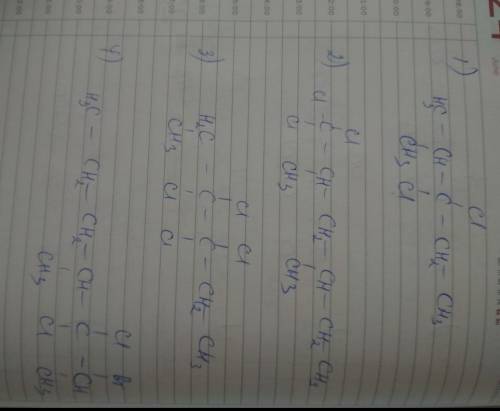 1)
Cl
H3C – CH – C – CH2 – CH3
CH3 Cl
2)
Cl
Cl C – CH – CH2 – CH – CH2 CH3
Cl CH3 CH3
3)
Cl Cl
H2C – C – C – CH2 – CH3
CH3 Cl Cl
4)
Cl Br
H3C – CH2 – CH2 – CH – C – CH
CH3 Cl CH3